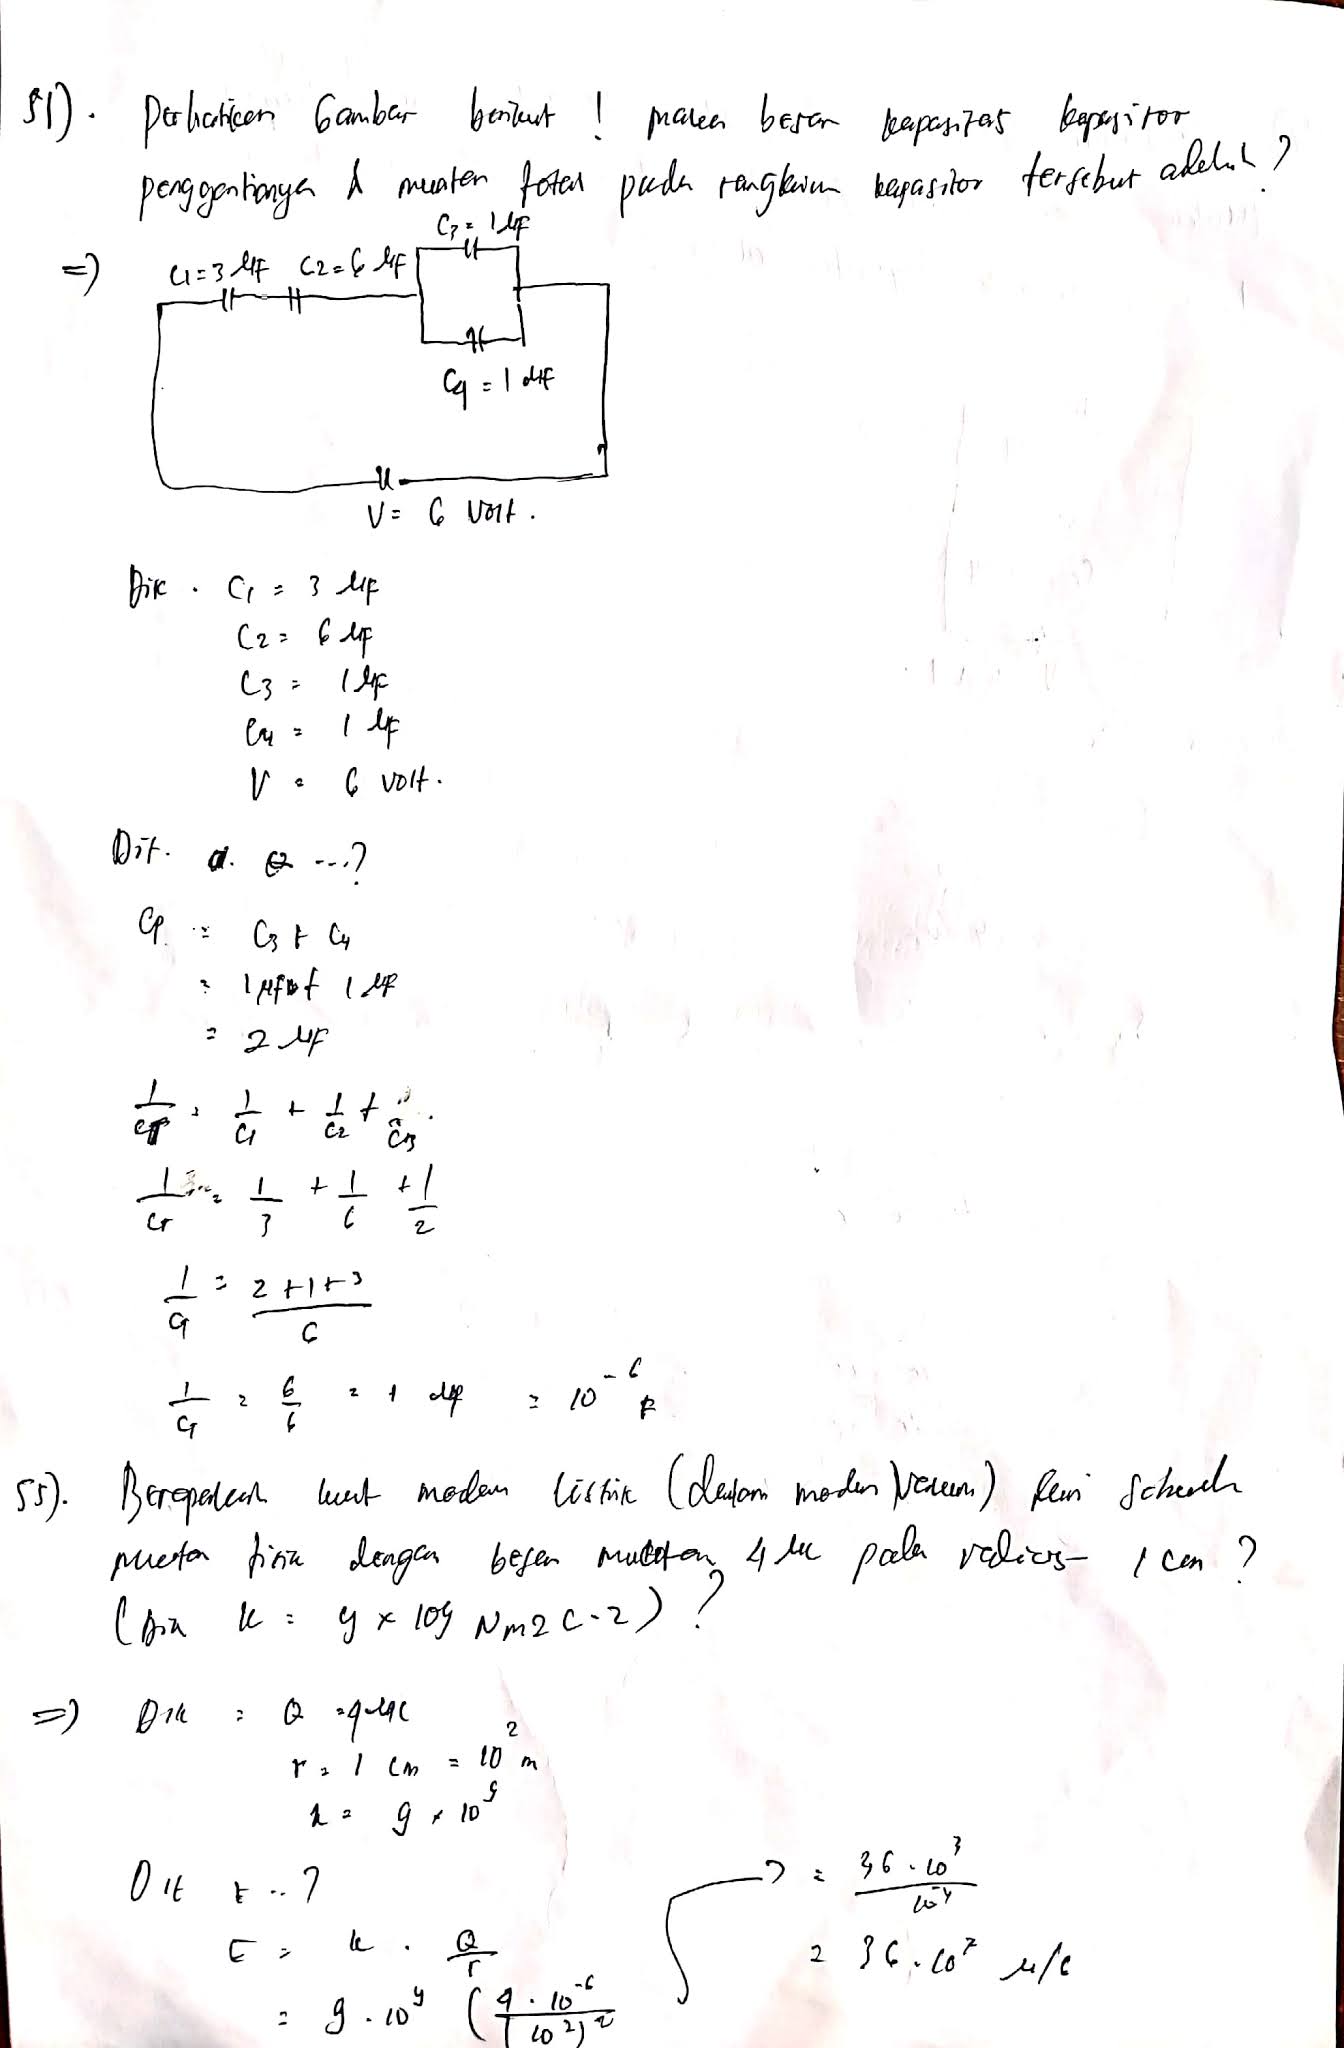 51). Perhatikan Gambar berikut ! maka besar kapasitas kapasitor
penggantinya & muatan total pada rangkaian kapasitor tersebut adalah ?
C3 = 1 μF
=) C1 = 3 μF C2 = 6 μF
C4 = 1 μF
V = 6 Volt.
Dik . C1 = 3 μF
C2 = 6 μF
C3 = 1 μF
C4 = 1 μF
V = 6 volt.
Dit. a. Q ...?
Cp = C3 + C4
= 1 μF + 1 μF
= 2 μF
1/CT = 1/C1 + 1/C2 +
1/CT = 1/3 + 1/6 + 1/2
1/CT = 2+1+3/6
1/CT = 6/6 = 1 μF = 10^-6 F
55). Berapakah kuat medan listrik (dalam medan vacum) dari sebuah
muatan titik dengan besar muatan 4 μc pada radius 1 cm ?
(Dik k = 9 x 109 Nm2 C-2) ?
=) Dik = Q = 4 μC
r = 1 cm = 10^2 m
k = 9 x 10^9
Dit E ..?
E = k . Q/r
= 9 . 10^9 (4 . 10^-6/(10^2)^2
= 36 . 10^3/10^-4
= 36 . 10^7 N/C